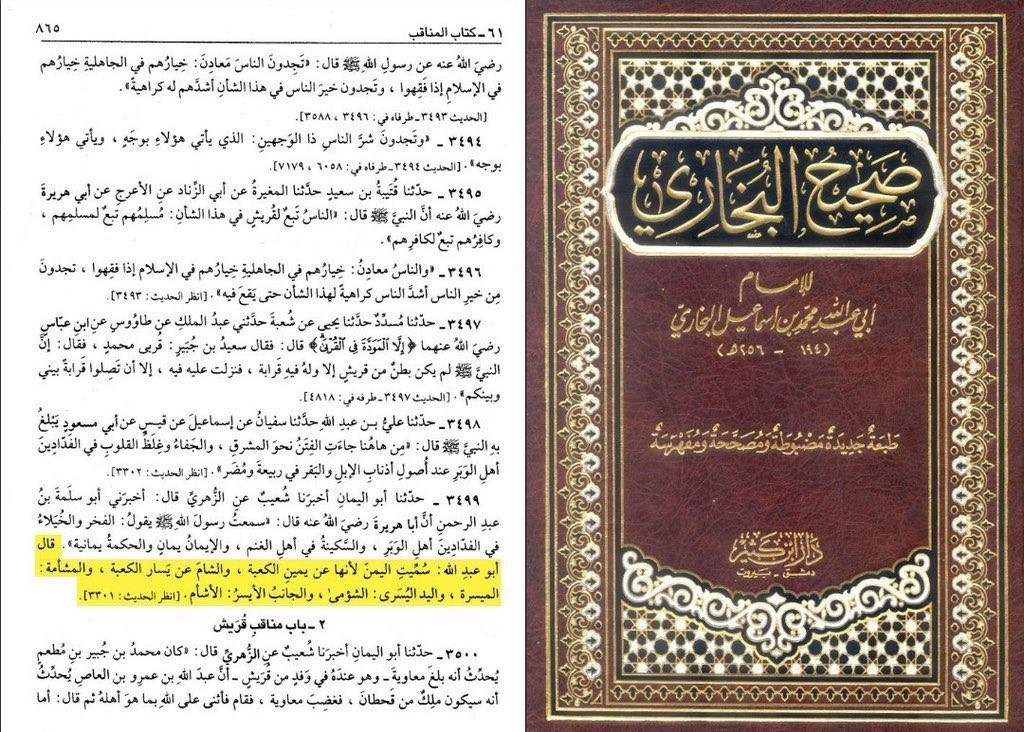 ٦١ ـ كتاب المناقب
٨٦٥
رضيَ اللهُ عنه عن رسولِ اللهِ ﷺ قال: «تَجِدونَ الناسَ مَعادِنَ: خِيارُهم في الجاهليةِ خِيارُهم
في الإسلامِ إذا فَقِهوا ، وتَجدون خيرَ الناس في هذا الشأنِ أشدَّهم له كراهيةً» .
[الحديث ٣٤٩٣ ـ طرفاه في: ٣٤٩٦ ، ٣٥٨٨].
٣٤٩٤ ـ «وتَجدونَ شرَّ الناسِ ذا الوَجهينِ: الذي يأتي هؤلاءِ بوجَهٍ ، ويأتي هؤلاءِ
بوجه» . [الحديث ٣٤٩٤ ـ طرفاه في: ٦٠٥٨ ، ٧١٧٩].
٣٤٩٥ ـ حدّثنا قُتَيبةُ بن سعيدٍ حدَّثنا المغيرةُ عن أبي الزِّناد عن الأعرجِ عن أبي هريرةَ
رضيَ الله عنه أنَّ النبيَّ ﷺ قال: «الناسُ تَبعٌ لقُريشٍ في هذا الشأنِ: مُسلِمُهم تَبعٌ لمسلمِهم ،
وكافِرُهم تبعٌ لكافرِهم» .
٣٤٩٦ ـ «والناسُ معادِنُ: خِيارُهم في الجاهليةِ خِيارُهم في الإسلام إذا فقِهوا ، تجدونَ
مِن خيرِ الناس أشدَّ الناس كراهيةً لهذا الشأن حتى يَقعَ فيه» . [انظر الحديث: ٣٤٩٣].
٣٤٩٧ ـ حدّثنا مُسدَّدٌ حدَّثنا يحيى عن شُعبةَ حدَّثني عبدُ الملكِ عن طاوُوسٍ عنِ ابنِ عبّاسٍ
رضيَ اللهُ عنهما ﴿إِلَّا ٱلْمَوَدَّةَ فِى ٱلْقُرْبَىٰ﴾ قال: فقال سعيدُ بن جُبَيرٍ: قُربى محمدٍ ، فقال: إنَّ
النبيَّ ﷺ لم يكن بطنٌ من قريشٍ إلا ولهُ فيهِ قَرابة ، فنزلت عليه فيه ، إلا أن تَصِلوا قَرابةً بيني
وبينكم» . [الحديث ٣٤٩٧ ـ طرفه في: ٤٨١٨].
٣٤٩٨ ـ حدّثنا عليُّ بـن عبدِ اللهِ حدَّثنا سفيانُ عن إسماعيلَ عن قيسٍ عن أبي مسعودٍ يَبْلغُ
به النبيَّ ﷺ قال: «مِن هاهُنا جاءَتِ الفِتَنُ نحوَ المشرقِ ، والجَفاءُ وغِلَظُ القلوبِ في الفَدّادِينَ
أهلِ الوَبَرِ عند أُصولِ أذنابِ الإبلِ والبَقر في ربيعةَ ومُضَر» . [انظر الحديث: ٣٣٠٢].
٣٤٩٩ ـ حدّثنا أبو اليمانِ أخبرَنا شُعيبٌ عن الزُّهريِّ قال: أخبرَني أبو سلَمةَ بنُ
عبدِ الرحمنِ أنَّ أبا هريرةَ رضيَ اللهُ عنه قال: «سمعتُ رسولَ اللهِ ﷺ يقولُ: الفخر والخُيَلاءُ
في الفدّادِينَ أهلِ الوَبَرِ ، والسَّكينةُ في أهلِ الغنم ، والإيمانُ يمانٍ والحكمةُ يمانية» . قال
أبو عبدِ الله: سُمِّيتِ اليمنَ لأنها عن يمينِ الكعبة ، والشامَ عن يَسار الكعبة ، والمشأمة:
الميسرة ، واليد اليُسرَى: الشؤمىٰ ، والجانبُ الأيسرُ: الأشأم . [انظر الحديث: ٣٣٠١].
٢ ـ باب مناقبِ قُرَيش
٣٥٠٠ ـ حدّثنا أبو اليمانِ أخبرَنا شُعيبٌ عن الزُّهريِّ قال: «كان محمدُ بن جُبير بنِ مُطعمٍ
يُحدِّثُ أنه بلغَ معاويةَ ـ وهو عندَهُ في وَفدٍ من قُرَيشٍ ـ أنَّ عبدَ الله بن عمرِو بن العاصِ يُحدِّثُ
أنه سيكون ملِكٌ من قَحطانَ ، فغضِبَ معاوية ، فقام فأثنى على اللهِ بما هوَ أهلهُ ثم قال: أما
صَحِيحُ البُخَارِيِّ
للإمام
أبي عبد الله محمد بن إسماعيل البخاريّ
(١٩٤ - ٢٥٦هـ)
طبعَةٌ جَدِيدَةٌ مَضبُوطَةٌ وَمُصَحَّحَةٌ وَمُفَهْرَسَةٌ
دار ابن كثير
دمشق - بيروت